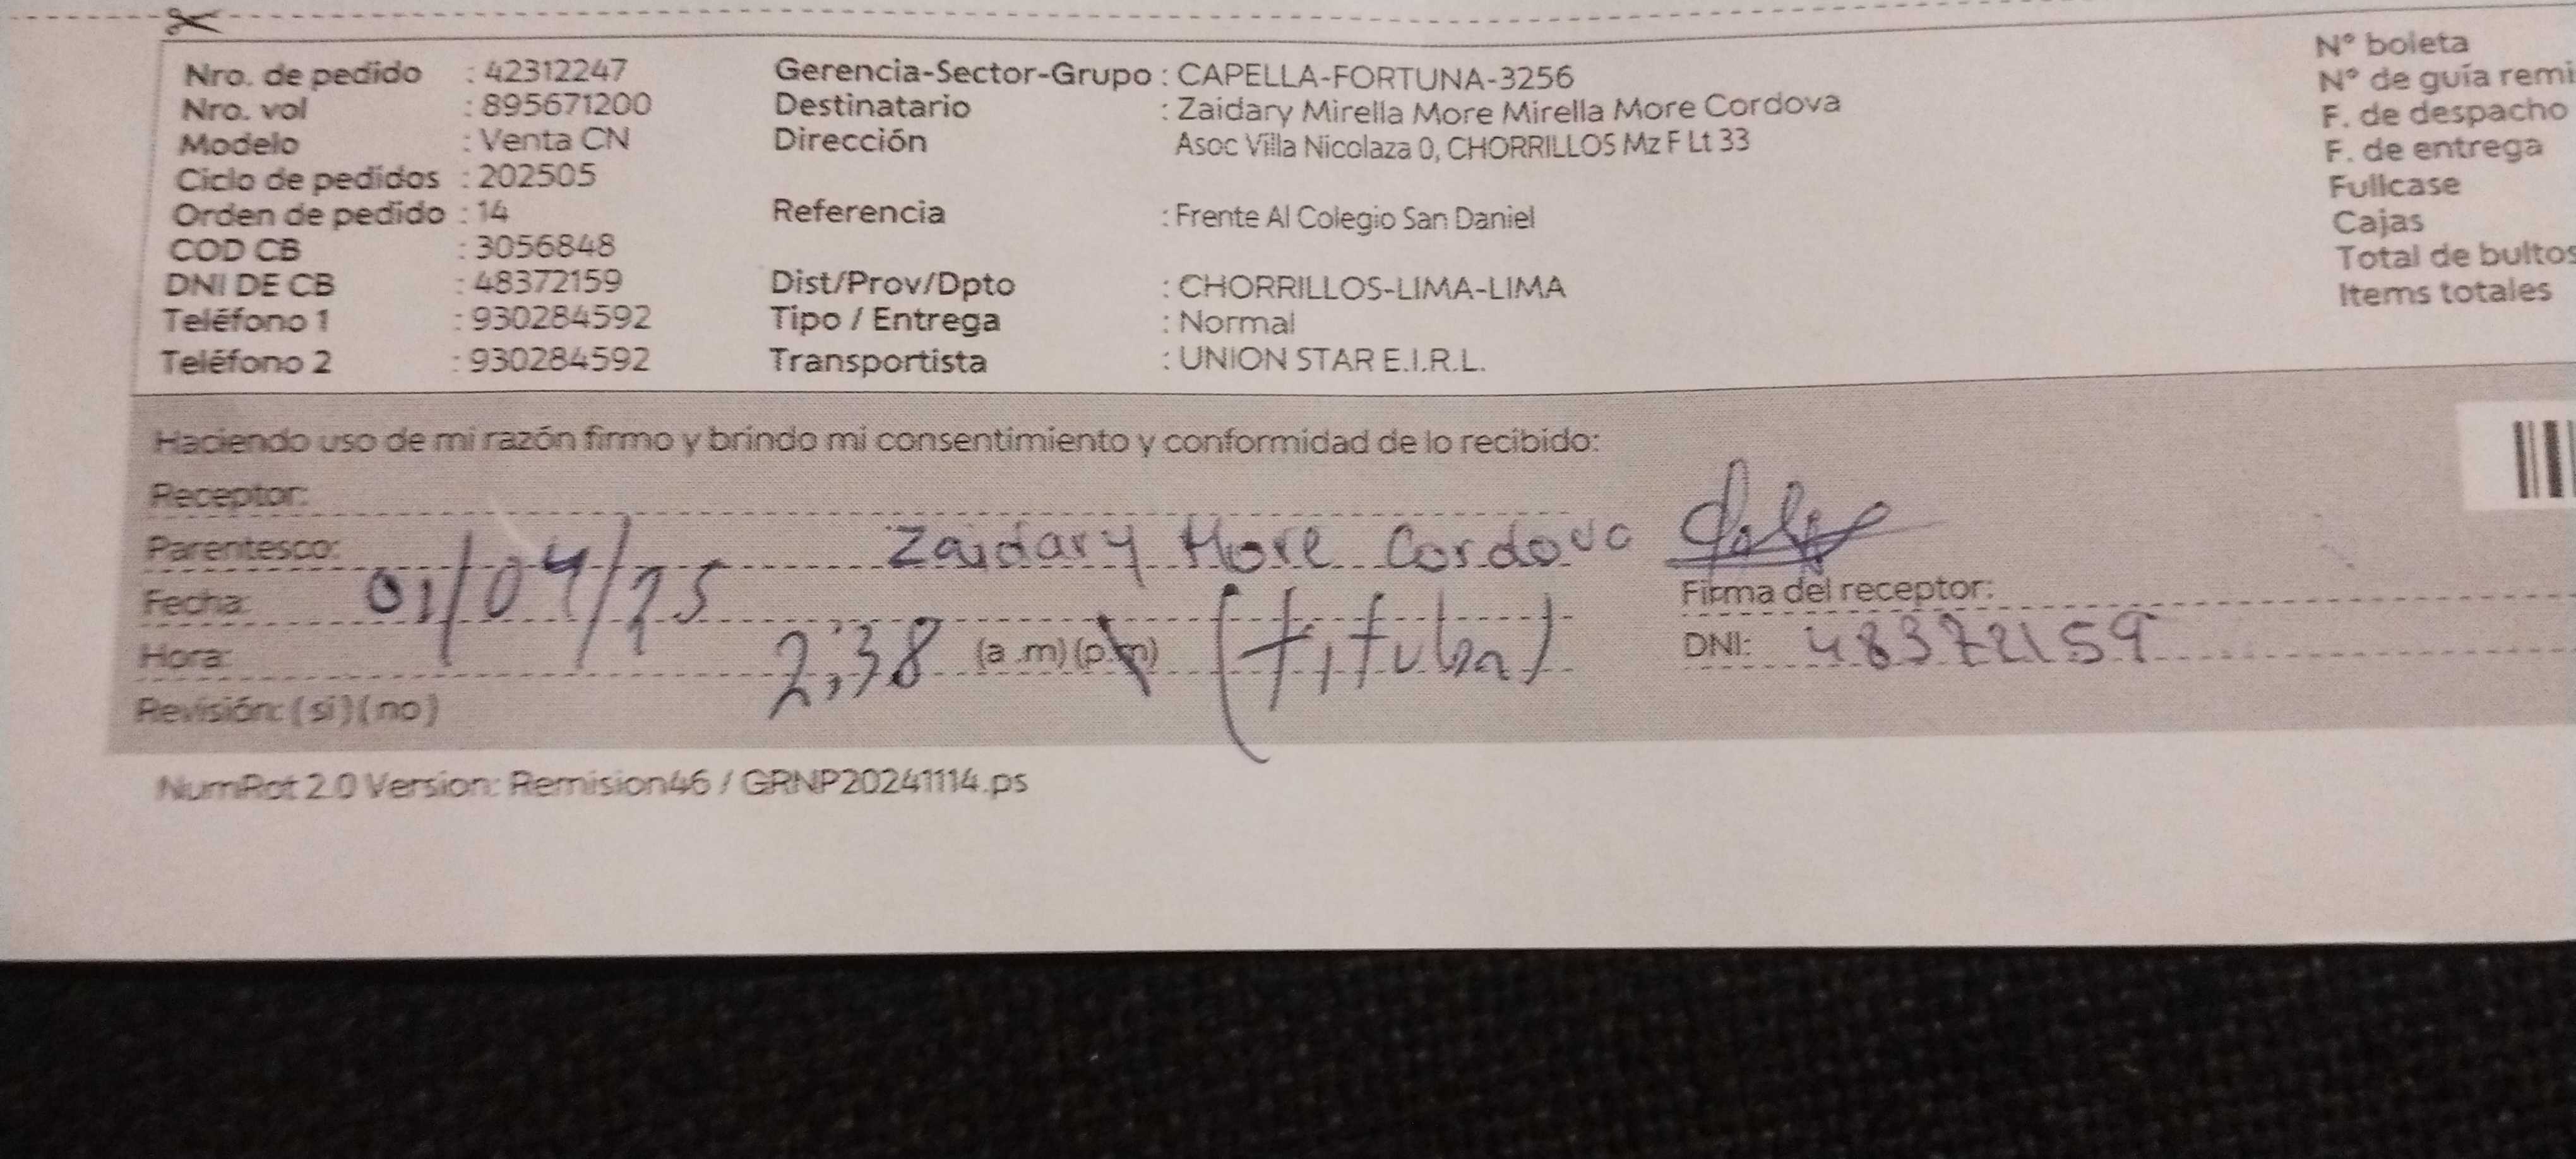 Nro. de pedido : 42312247
Nro. vol : 895671200
Modelo : Venta CN
Ciclo de pedidos : 202505
Orden de pedido : 14
COD CB : 3056848
DNI DE CB : 48372159
Teléfono 1 : 930284592
Teléfono 2 : 930284592
Gerencia-Sector-Grupo : CAPELLA-FORTUNA-3256
Destinatario : Zaidary Mirella More Mirella More Cordova
Dirección Asoc Villa Nicolaza 0, CHORRILLOS Mz F Lt 33
Referencia : Frente Al Colegio San Daniel
Dist/Prov/Dpto : CHORRILLOS-LIMA-LIMA
Tipo / Entrega : Normal
Transportista : UNION STAR E.I.R.L.
N° boleta
N° de guía remi
F. de despacho
F. de entrega
Fullcase
Cajas
Total de bultos
Items totales
Haciendo uso de mi razón firmo y brindo mi consentimiento y conformidad de lo recibido:
Receptor:
Parentesco: Zaidary More Cordova
Fecha: 01/04/25
Firma del receptor:
Hora: 2:38 (a .m) (p.m)
DNI: 48372159
Revisión: ( si ) ( no )
NumRot 2.0 Version: Remision46 / GRNP20241114.ps